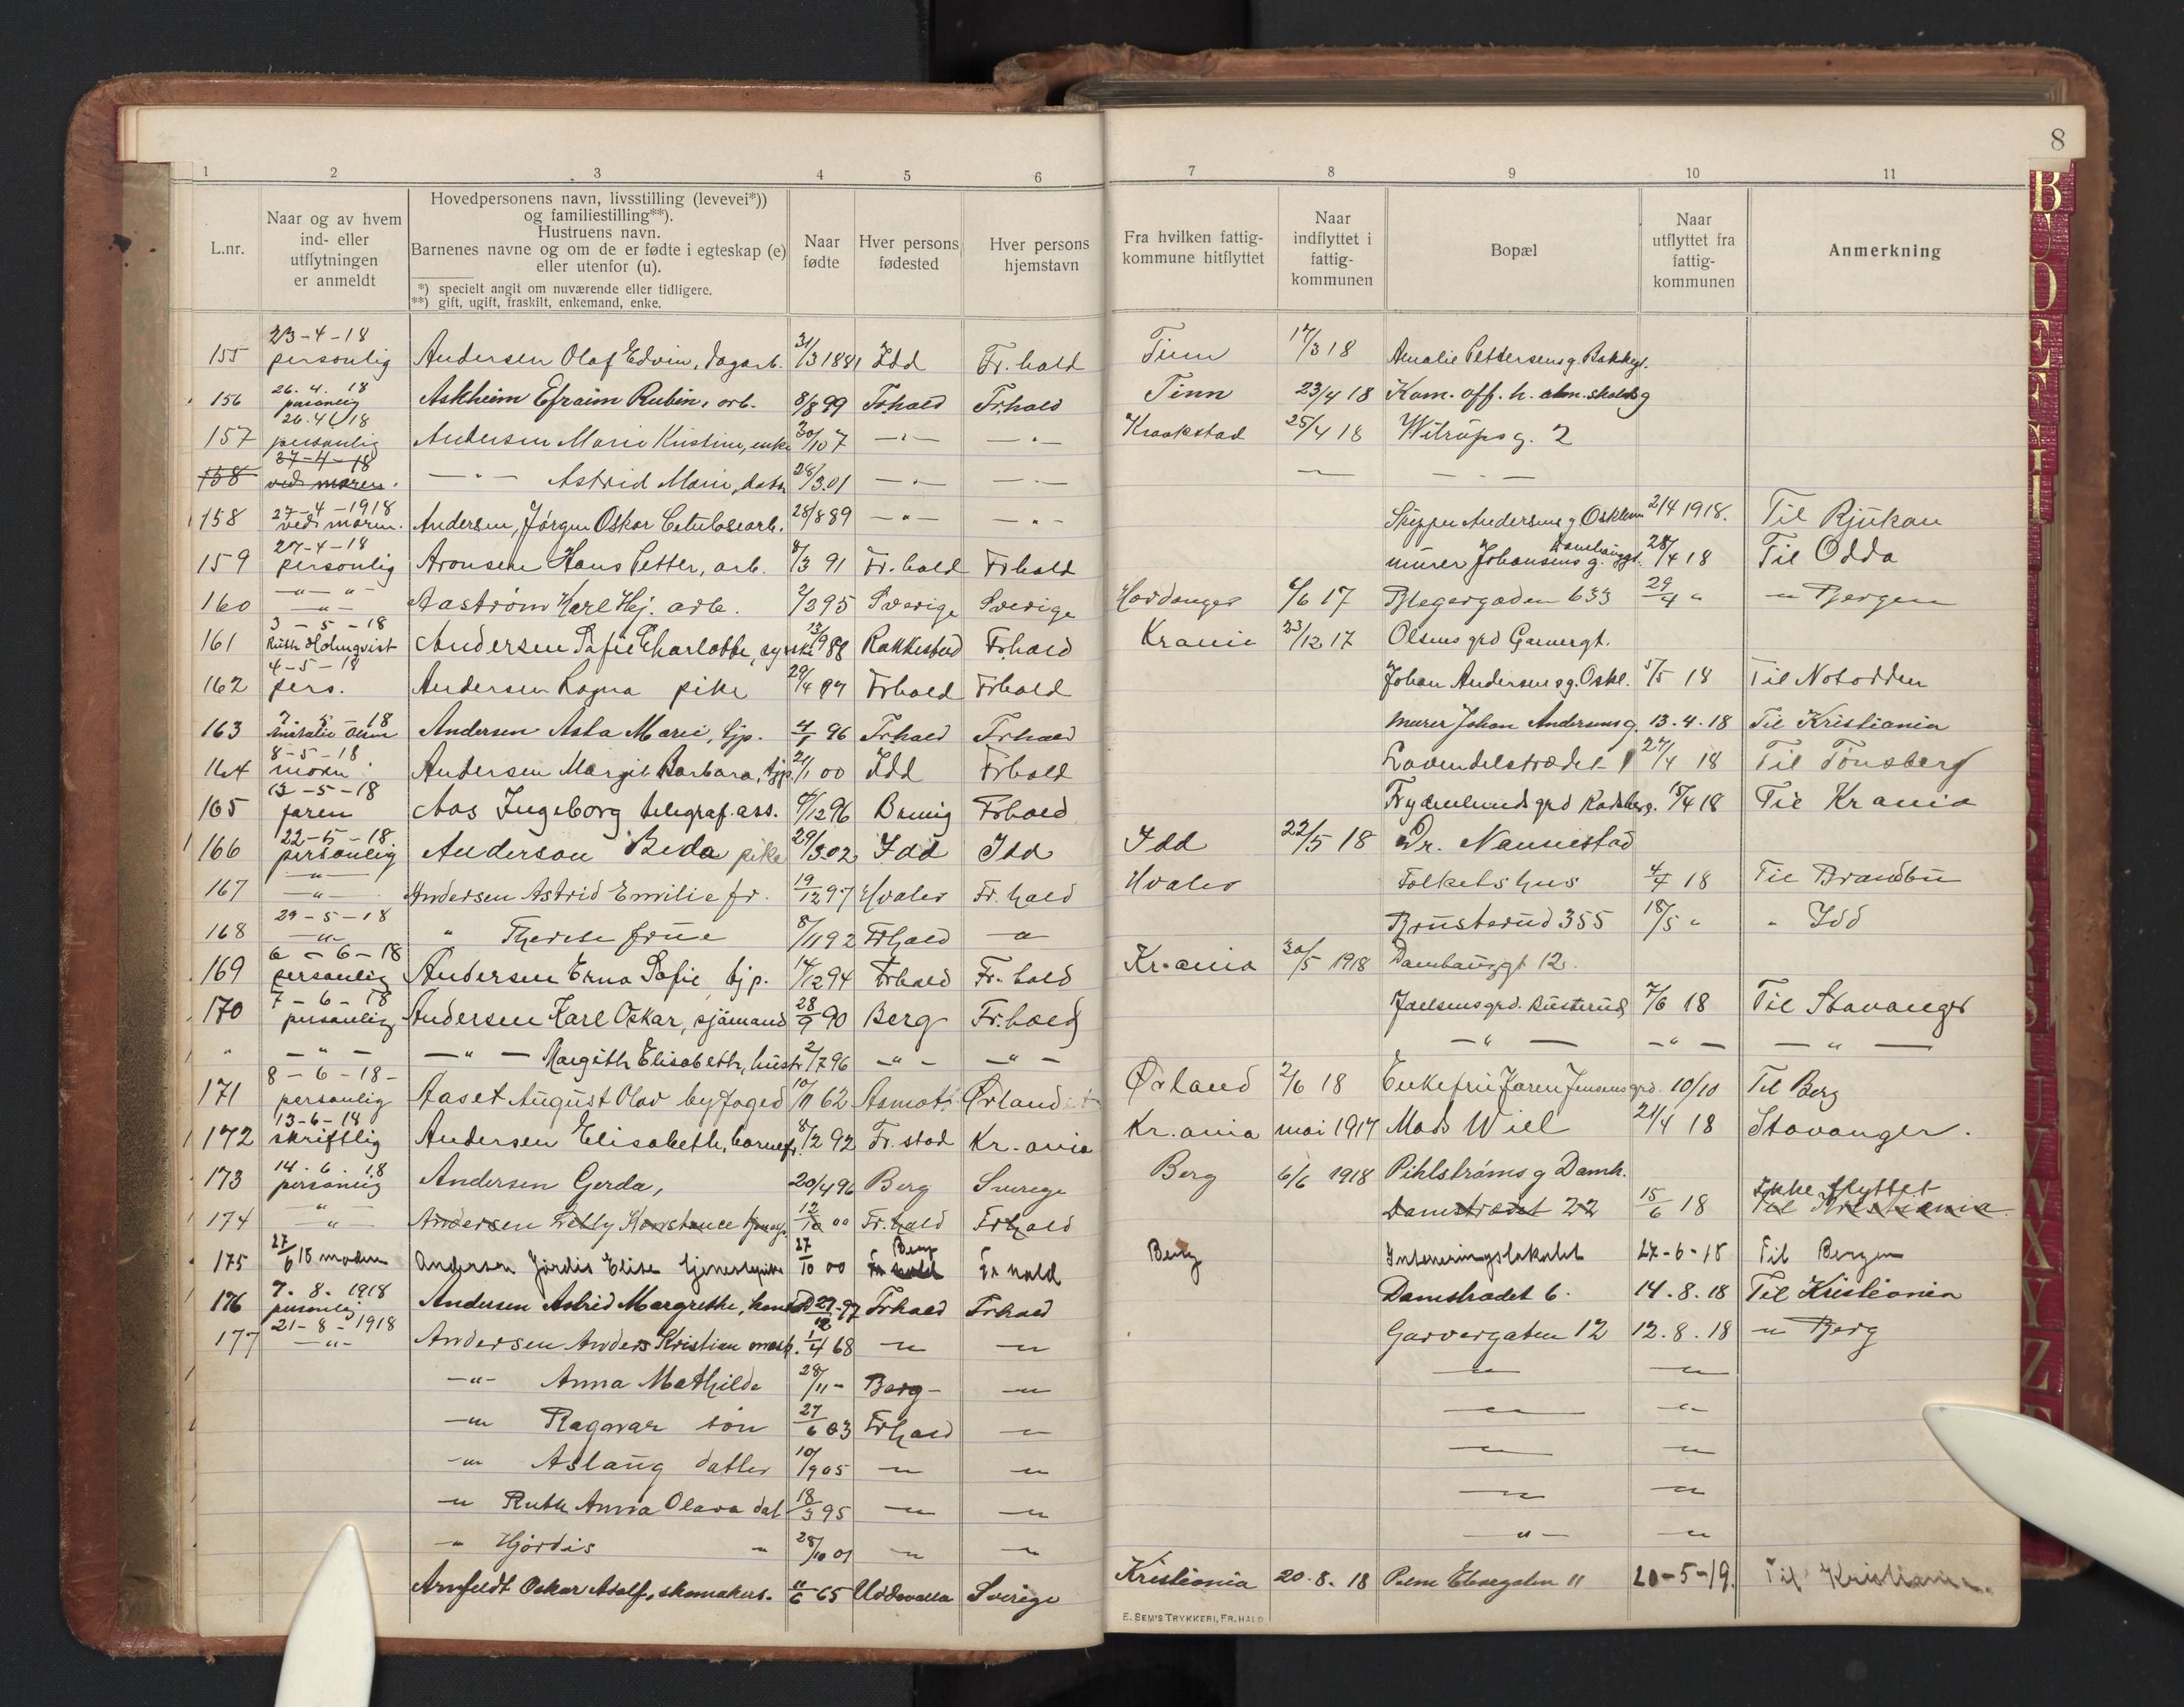 8
1 2 3 4 5 6 7 8 9 10 11
L.nr.
Naar og av hvem
ind- eller
utflytningen
er anmeldt
Hovedpersonens navn, livsstilling (levevei*))
og familiestilling**).
Hustruens navn.
Barnenes navne og om de er fødte i egteskap (e)
eller utenfor (u).
*) specielt angit om nuværende eller tidligere.
**) gift, ugift, fraskilt, enkemand, enke.
Naar
fødte
Hver persons
fødested
Hver persons
hjemstavn
Fra hvilken fattig-
kommune hitflyttet
Naar
indflyttet i
fattig-
kommunen
Bopæl
Naar
utflyttet fra
fattig-
kommunen
Anmerkning
23-4-18
155 personlig Andersen Olaf Edvin, dagarb. 31/3 1881 Idd Fr.hald Tinn 17/3 18 Amalie Pettersens g.
26.4.18
156 personlig Askheim Efraim Rubin, arb. 8/8 99 Frhald Frhald Tinn 23/4 18 Kom. off. h.
26.4.18
157 personlig Andersen Marie Kristine, enke 30/10 7 —"— —"— Kraakstad 25/4 18 Witrups g. 2
27-4-18
158 ved moren. —"— Astrid Marie, datter 28/3.01 —"— —"— — — —
27-4-1918
158 ved moren. Andersen, Jörgen Oskar Celulosearb. 28/8 89 —"— —"— Skipper Andersens g Osklien 2/4 1918. Til Rjukan
27-4-18
159 personlig Aronsen Hans Petter, arb. 8/3 91 Fr.hald Frhald murer Johansens g. Damhauggt. 28/4 18 Til Odda
—"— "—
160 —"— Aaström Karl Hj. arb. 2/2 95 Sverige Sverige Hardanger 6/6 17 Blegergaden 633 29/4 " —" Bergen
3-5-18
161 Ruth Holmqvist Andersen Sofie Charlotte, syerske 13/9 88 Rakkestad Frhald Krania 23/12 17 Olsens grd Garvergt.
4-5-18
162 pers. Andersen Ragna pike 29/4 97 Frhald Frhald Johan Andersens g. Oskl. 5/5 18 Til Notodden
7.5-18
163 Olsen Andersen Asta Marie, tjp. 4/1 96 Frhald Frhald Murer Johan Andersens g. 13.4.18 Til Kristiania
8-5-18
164 moren Andersen Margit Barbara, tjp. 21/1 00 Idd Frhald Lavendelstrædet 1 27/4 18 Til Tönsberg
13-5-18
165 faren Aas Ingeborg telegraf.ass. 6/12 96 Frhald Frydenlunds grd Rødsberg. 15/4 18 Til Krania
22-5-18
166 personlig Anderson Beda pike 29/3.02 Idd Idd Idd 22/5 18 Dr. Nannestad
—"—
167 —"— Andersen Astrid Emilie fr. 19/12 97 Hvaler Fr.hald Hvaler Folkets hus 4/4 18 Til Brandbu
29-5-18
168 —"— " Therese frue 8/11 92 Frhald —" Brusterud 355 18/5 " " Idd
6-6-18
169 personlig Andersen Erna Sofie, tjp. 14/12 94 Frhald Fr.hald Kr.ania 30/5 1918 Damhauggt 12.
7-6-18
170 personlig Andersen Karl Oskar, sjömand 28/9 90 Berg Fr.hald Joelsens grd. Busterud 7/6 18 Til Stavanger
" —"— —"— Margith Elisabeth, hustr 2/7 96 —"— —"— —"— —"— —"—
8-6-18-
171 personlig Aaset August Olav byfoged 10/11 62 Aamot Ørlandet Ørland 2/6 18 Enkefru Karen Jensens grd. 10/10 Til Berg
13-6-18
172 skriftlig Andersen Elisabeth, barnepl. 8/2 92 Fr.stad Kr.ania Kr.ania mai 1917 Mads Wiel 21/4 18 Stavanger.
14.6.18
173 personlig Andersen Gerda, 20/4 96 Berg Sverige Berg 6/6 1918 Pihlströms g Damh.
—"— Ikke flyttet
174 —"— Andersen Konstance 12/10 00 Fr.hald Frhald Damstrædet 22 15/6 18 Til Kristiania
175 27/6 18 moderen Andersen Jördis Elise tjenestepike 27/10 00 Fr hald Berg Fr hald Berg Interneringslokalet 27-6-18 Til Bergen
7.8.1918
176 personlig Andersen Astrid Margrethe, 27/12-97 Frhald Frhald Damstrædet 6. 14.8.18 Til Kristiania
21-8-1918
177 —"— Andersen Anders Kristian mask. 1/4 68 —" —" Garvergaten 12 12.8.18 —" Berg
—"— Anna Mathilde 28/11- Berg- —" —" —"
—"— Ragnvar sön 27/6 03 Frhald —" —" —"
—"— Aslaug datter 10/9 05 —" —" —" —"
—" Ruth Anna Olava dat 18/3 95 —" —" —" —"
—" Hjördis —" 28/10 01 —" —" —"— —"
Arnfeldt Oskar Adolf, skomakers. 11/6 65 Uddevalla Sverige Kristiania 20.8.18 11 20-5-19. Til Kristiania.
E. SEM'S TRYKKERI, FR.HALD
B
D
E
F
G
U
V
X
Y
Z